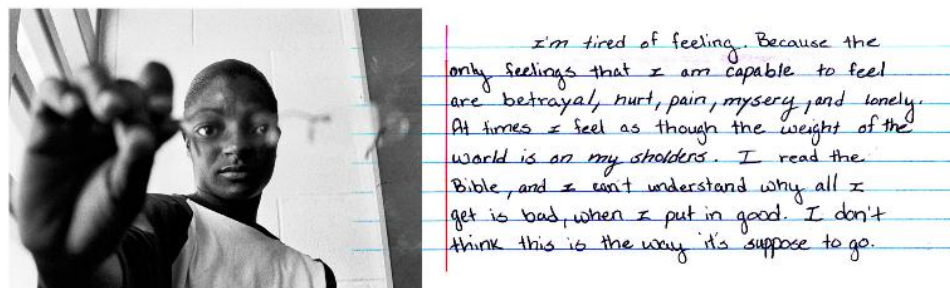 I'm tired of feeling. Because the
only feelings that I am capable to feel
are betrayal, hurt, pain, mysery, and lonely.
At times I feel as though the weight of the
world is on my sholders. I read the
Bible, and I can't understand why all I
get is bad, when I put in good. I don't
think this is the way it's suppose to go.